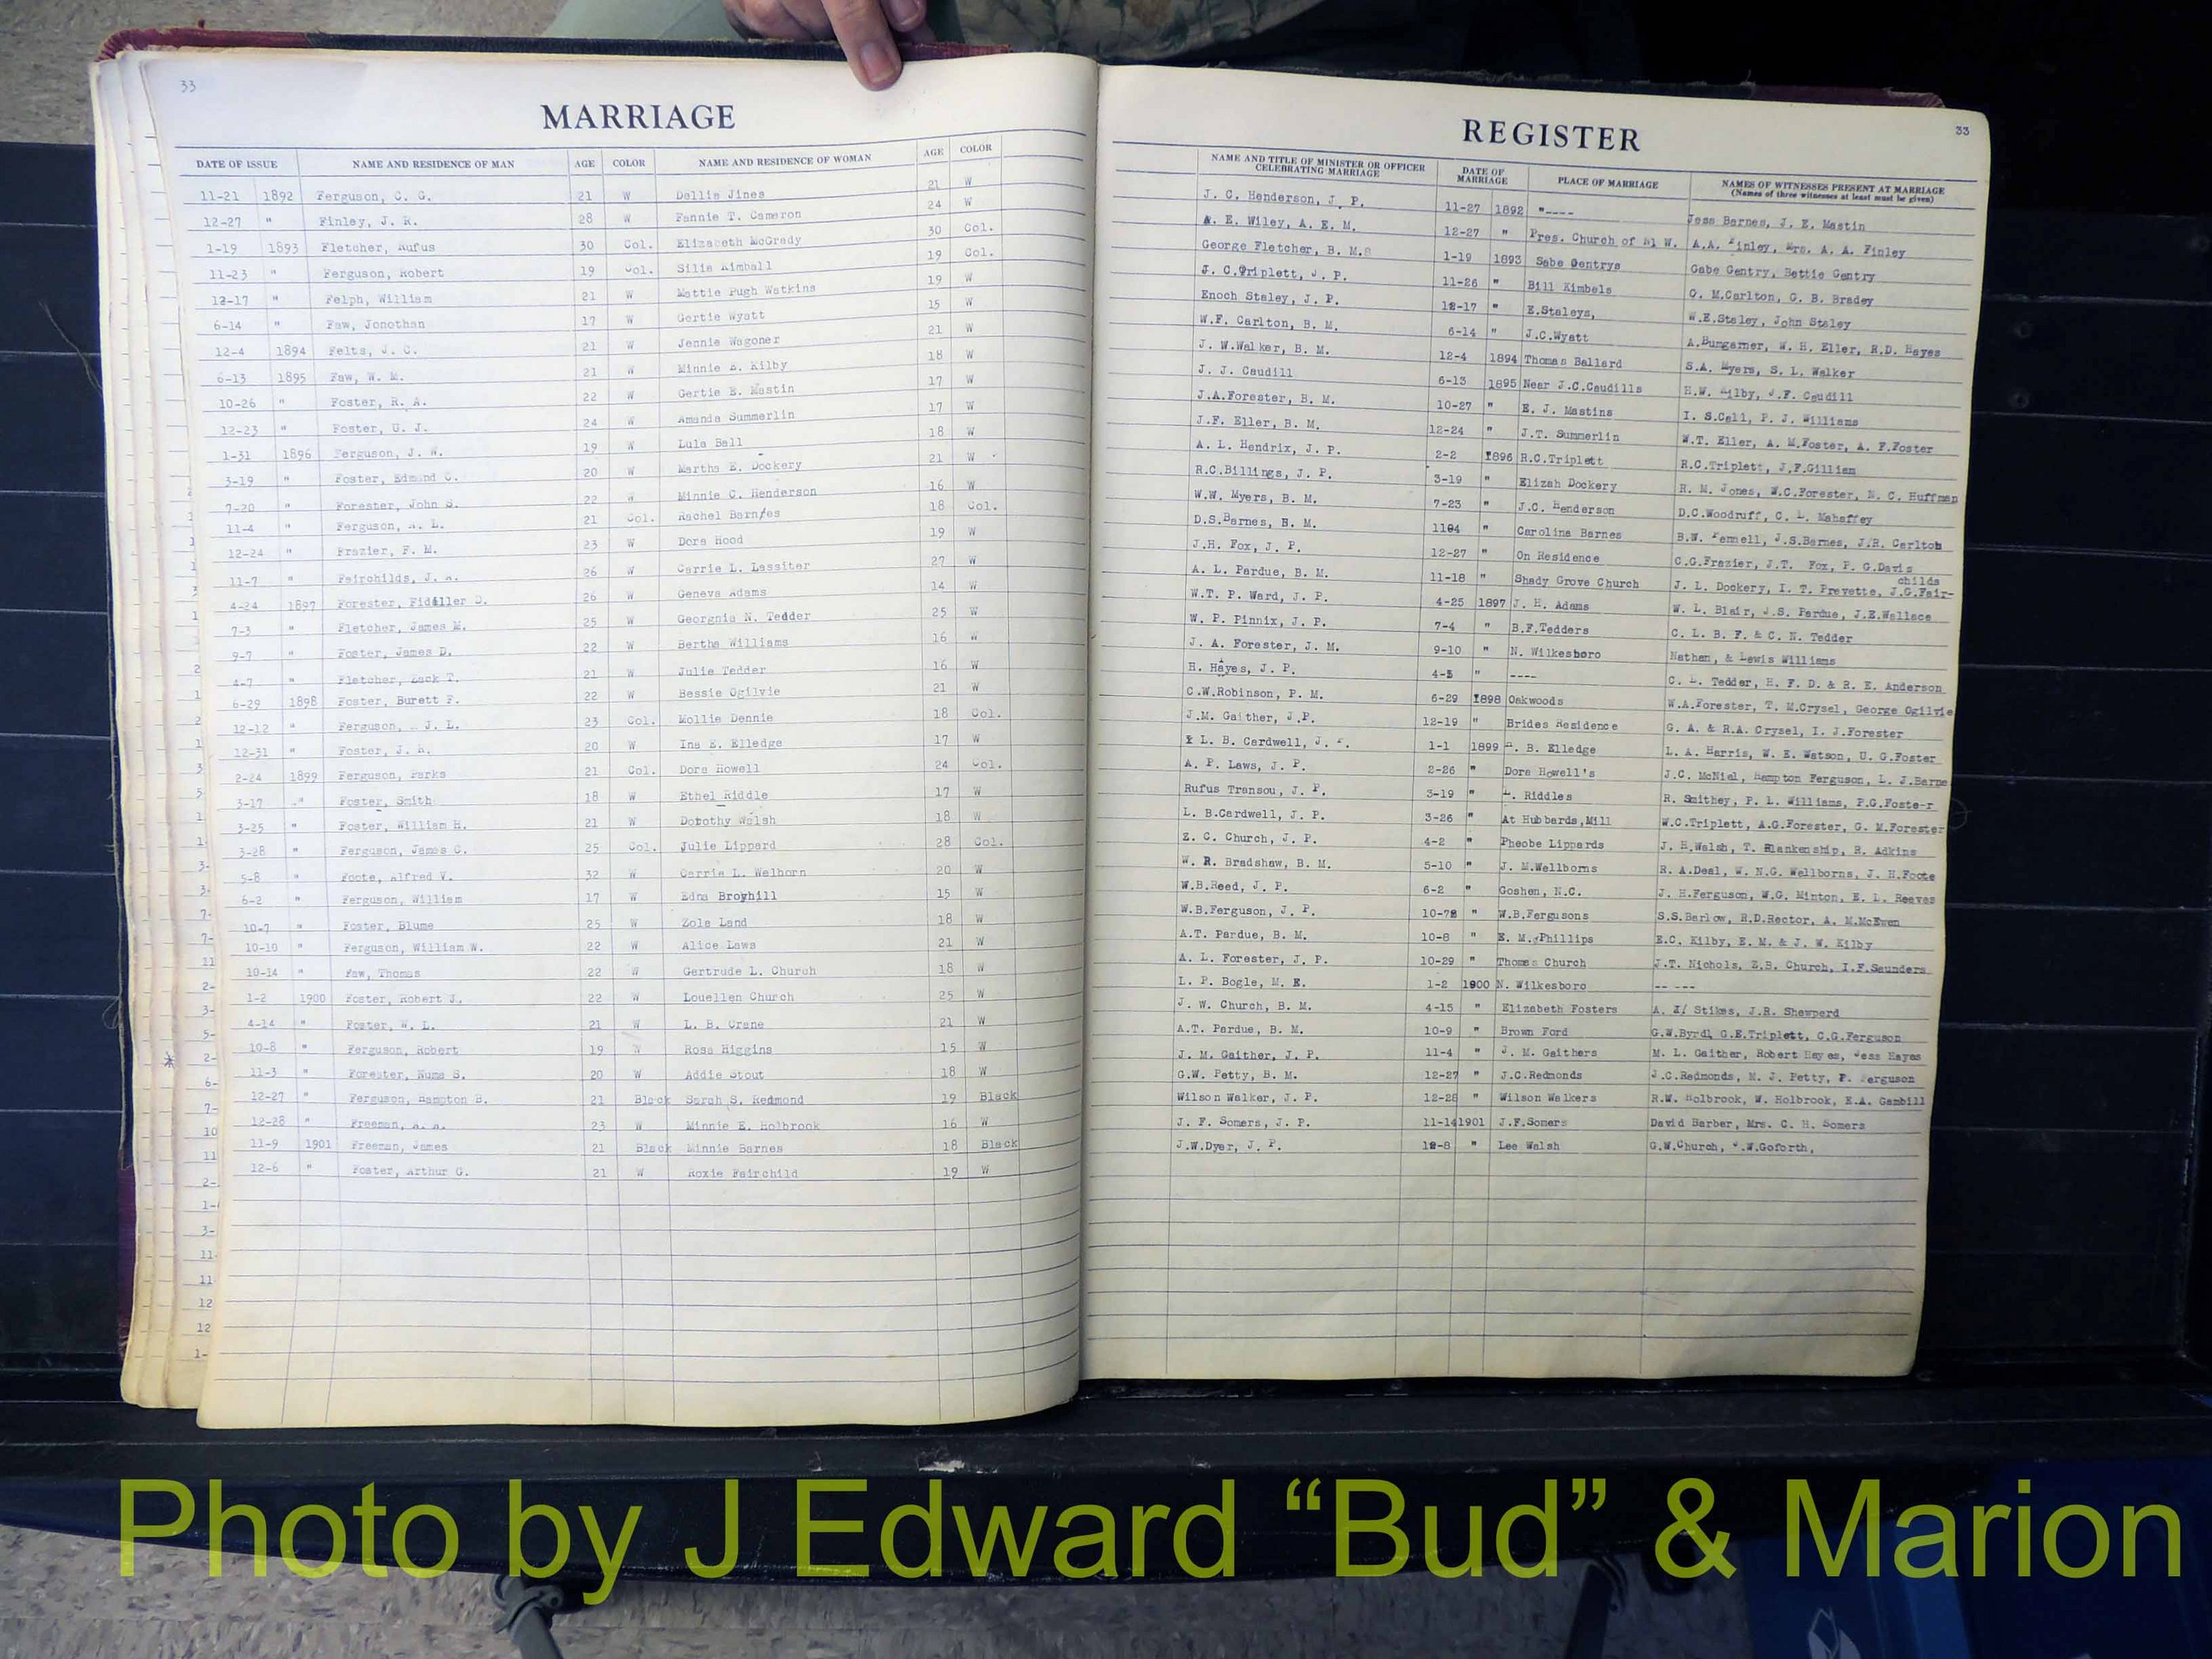 33
MARRIAGE
DATE OF ISSUE NAME AND RESIDENCE OF MAN AGE COLOR NAME AND RESIDENCE OF WOMAN AGE COLOR
11-21 1892 Ferguson, C. G. 21 W Dallie Jines 21 W
12-27 " Finley, J. R. 28 W Fannie T. Cameron 24 W
1-19 1893 Fletcher, Rufus 30 Col. Elizabeth McGrady 30 Col.
11-23 " Ferguson, Robert 19 Col. Silia Kimball 19 Col.
12-17 " Felph, William 21 W Mattie Pugh Watkins 19 W
6-14 " Faw, Jonothan 17 W Gertie Wyatt 15 W
12-4 1894 Felts, J. C. 21 W Jennie Wagoner 21 W
6-13 1895 Faw, W. M. 21 W Minnie Kilby 18 W
10-26 " Foster, R. A. 22 W Gertie E. Mastin 17 W
12-23 " Foster, U. J. 24 W Amanda Summerlin 17 W
1-31 1896 Ferguson, J. W. 19 W Lula Ball 18 W
3-19 " Foster, Edmond C. 20 W Martha E. Dockery 21 W
7-20 " Forester, John S. 22 W Minnie C. Henderson 16 W
11-4 " Ferguson, 21 Col. Rachel Barn/es 18 Col.
12-24 " Frazier, F. M. 23 W Dora Hood 19 W
11-7 " Fairchilds, J. 26 W Carrie L. Lassiter 27 W
4-24 1897 Forester, 26 W Geneva Adams 14 W
7-3 " Fletcher, James M. 25 W Georgnia N. Tedder 25 W
9-7 " Foster, James D. 22 W Bertha Williams 16 W
4-7 " Fletcher, Zack T. 21 W Julie Tedder 16 W
6-29 1898 Foster, Burett F. 22 W Bessie Ogilvie 21 W
12-12 " Ferguson, J. L. 23 Col. Mollie Dennie 18 Col.
12-31 " Foster, J. R. 20 W Ina E. Elledge 17 W
2-24 1899 Ferguson, Parks 21 Col. Dora Howell 24 Col.
3-17 " Foster, Smith 18 W Ethel Riddle 17 W
3-25 " Foster, William H. 21 W Dorothy Walsh 18 W
3-28 " Ferguson, James C. 25 Col. Julie Lippard 28 Col.
5-8 " Foote, Alfred V. 32 W Carrie L. Welborn 20 W
6-2 " Ferguson, William 17 W Edna Broyhill 15 W
10-7 " Foster, Blume 25 W Zola Land 18 W
10-10 " Ferguson, William W. 22 W Alice Laws 21 W
10-14 " Faw, Thomas 22 W Gertrude L. Church 18 W
1-2 1900 Foster, Robert J. 22 W Louellen Church 25 W
4-14 " Foster, W. L. 21 W L. B. Crane 21 W
10-8 " Ferguson, Robert 19 W Rosa Higgins 15 W
11-3 " Forester, Numa S. 20 W Addie Stout 18 W
12-27 " Ferguson, Hampton B. 21 Black Sarah S. Redmond 19 Black
12-28 " Freeman, A. A. 23 W Minnie E. Holbrook 16 W
11-9 1901 Freeman, James 21 Black Minnie Barnes 18 Black
12-6 " Foster, Arthur G. 21 W Roxie Fairchild 19 W
33
REGISTER
NAME AND TITLE OF MINISTER OR OFFICER CELEBRATING MARRIAGE DATE OF MARRIAGE PLACE OF MARRIAGE NAMES OF WITNESSES PRESENT AT MARRIAGE
(Names of three witnesses at least must be given)
J. C. Henderson, J. P. 11-27 1892 "---- Jess Barnes, J. E. Mastin
A. E. Wiley, A. E. M. 12-27 " Pres. Church of W. A.A. Finley, Mrs. A. A. Finley
George Fletcher, B. M.S 1-19 1893 Sabe Gentrys Gabe Gentry, Bettie Gentry
J. C.Triplett, J. P. 11-26 " Bill Kimbels O. M.Carlton, G. B. Bradey
Enoch Staley, J. P. 12-17 " E.Staleys, W.E.Staley, John Staley
W.F. Carlton, B. M. 6-14 " J.C.Wyatt A.Bumgarner, W. H. Eller, R.D. Hayes
J. W.Walker, B. M. 12-4 1894 Thomas Ballard S.A. Myers, S. L. Walker
J. J. Caudill 6-13 1895 Near J.C.Caudills H.W. Kilby, J.F. Caudill
J.A.Forester, B. M. 10-27 " E. J. Mastins I. S.Call, P. J. Williams
J.F. Eller, B. M. 12-24 " J.T. Summerlin W.T. Eller, A. M.Foster, A. F.Foster
A. L. Hendrix, J. P. 2-2 1896 R.C.Triplett R.C.Triplett, J.F.Gilliam
R.C.Billings, J. P. 3-19 " Elizah Dockery R. M. Jones, W.C.Forester, N. C. Huffman
W.W. Myers, B. M. 7-23 " J.C. Henderson D.C.Woodruff, C. L. Mahaffey
D.S.Barnes, B. M. 1104 " Caroline Barnes B.W. Fennell, J.S.Barnes, J.R. Carlton
J.H. Fox, J. P. 12-27 " On Residence C.G.Frazier, J.T. Fox, P. G.Davis
A. L. Pardue, B. M. 11-18 " Shady Grove Church J. L. Dockery, I. T. Prevette, J.G.Fair-childs
W.T. P. Ward, J. P. 4-25 1897 J. H. Adams W. L. Blair, J.S. Pardue, J.E.Wallace
W. P. Pinnix, J. P. 7-4 " B.F.Tedders C. L. B. F. & C. N. Tedder
J. A. Forester, J. M. 9-10 " N. Wilkesboro Nathan, & Lewis Williams
H. Hayes, J. P. 4-8 " ---- C. L. Tedder, H. F. D. & R. E. Anderson
C.W.Robinson, P. M. 6-29 1898 Oakwoods W.A.Forester, T. M.Crysel, George Ogilvie
J.M. Gaither, J.P. 12-19 " Brides Residence G. A. & R.A. Crysel, I. J.Forester
L. B. Cardwell, J. P. 1-1 1899 B. Elledge L. A. Harris, W. E. Watson, U. G.Foster
A. P. Laws, J. P. 2-26 " Dora Howell's J.C. McNiel, Hampton Ferguson, L. J.Barne
Rufus Transou, J. P. 3-19 " L. Riddles R. Smithey, P. L. Williams, P.G.Foste-r
L. B.Cardwell, J. P. 3-26 " At Hubbards,Mill W.C.Triplett, A.G.Forester, G. M.Forester
Z. C. Church, J. P. 4-2 " Pheobe Lippards J. H.Walsh, T. Blankenship, R. Adkins
W. R. Bradshaw, B. M. 5-10 " J. M.Wellborns R. A.Deal, W. N.G. Wellborns, J. H.Foote
W.B.Reed, J. P. 6-2 " Goshen, N.C. J. H.Ferguson, W.G. Minton, E. L. Reeves
W.B.Ferguson, J. P. 10-78 " W.B.Fergusons S.S.Barlow, R.D.Rector, A. M.McEwen
A.T. Pardue, B. M. 10-8 " E. M. Phillips E.C. Kilby, E. M. & J. W. Kilby
A. L. Forester, J. P. 10-29 " Thomas Church J.T. Nichols, Z.B. Church, I.F.Saunders
L. P. Bogle, M. E. 1-2 1900 N. Wilkesboro -- ---
J. W. Church, B. M. 4-15 " Elizabeth Fosters A. Stikes, J.R. Shewperd
A.T. Pardue, B. M. 10-9 " Brown Ford G.W.Byrd, G.E.Triplett, C.G.Ferguson
J. M. Gaither, J. P. 11-4 " J. M. Gaithers M. L. Gaither, Robert Hayes, Jess Hayes
G.W. Petty, B. M. 12-27 " J.C.Redmonds J.C.Redmonds, M. J. Petty, F. Ferguson
Wilson Walker, J. P. 12-28 " Wilson Walkers R.W. Holbrook, W. Holbrook, E.A. Gambill
J. F. Somers, J. P. 11-14 1901 J.F.Somers David Barber, Mrs. C. H. Somers
J.W.Dyer, J. P. 12-8 " Lee Walsh G.W.Church, J.W.Goforth,
Photo by J Edward “Bud” & Marion